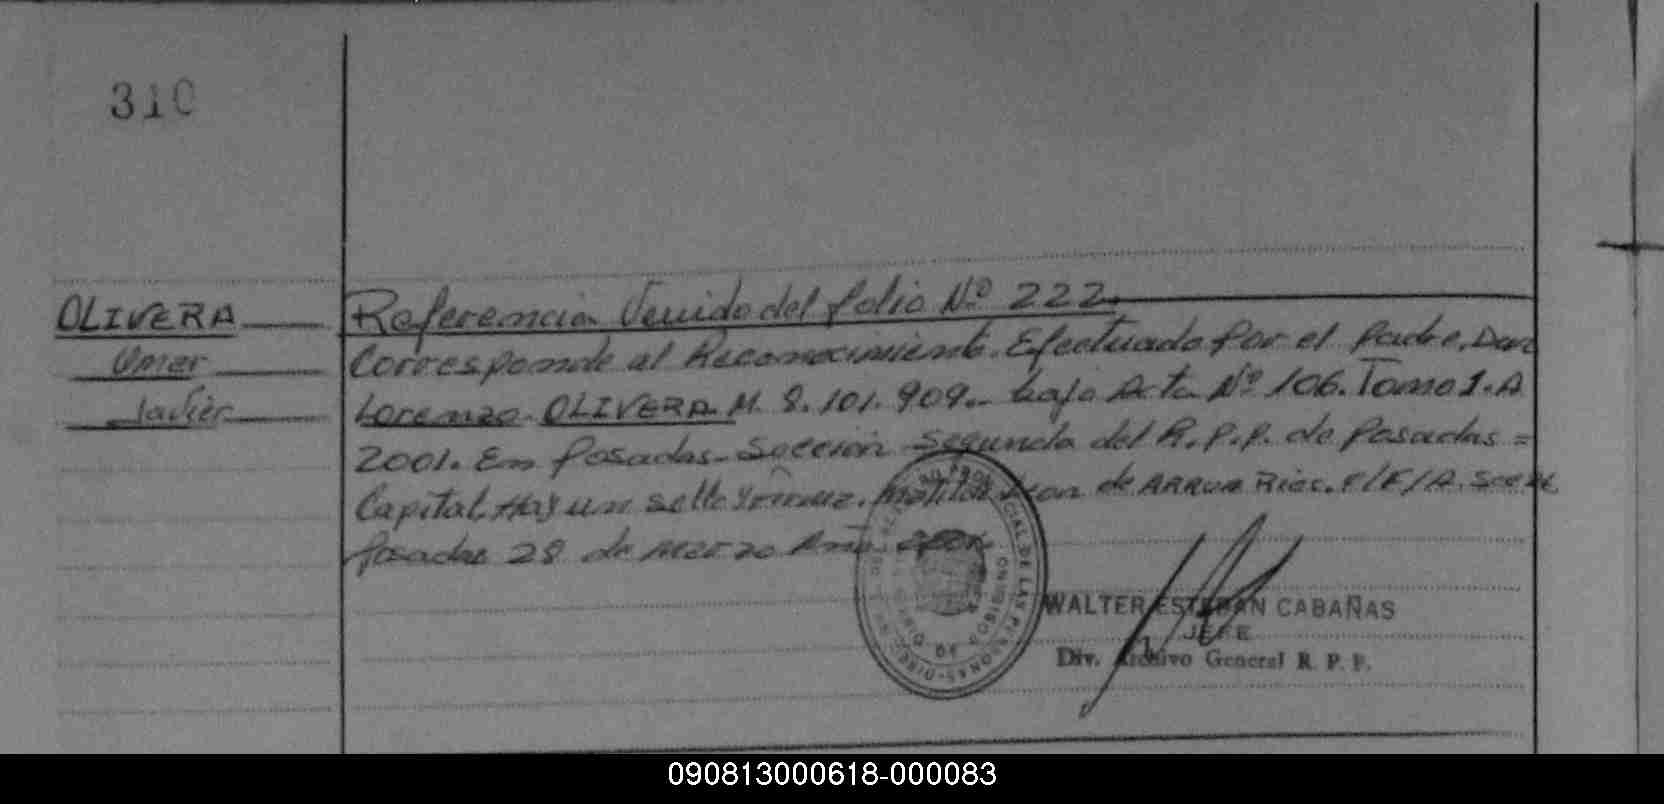 310
OLIVERA
Omar
Javier
Referencia Venido del folio Nº 222.
Corresponde al Reconocimiento. Efectuado por el padre, Don
Lorenzo OLIVERA M. 8.101.909.- bajo Acta Nº 106. Tomo 1. A
2001. En Posadas- Sección Segunda del R.P.P. de Posadas =
Capital. Hay un sello y firma. de Rios.
Posadas 28 de Marzo Año
WALTER ESTEBAN CABAÑAS
JEFE
Div. Archivo General R. P. P.
PROVINCIAL DE LAS PERSONAS
DE GOBIERNO
090813000618-000083